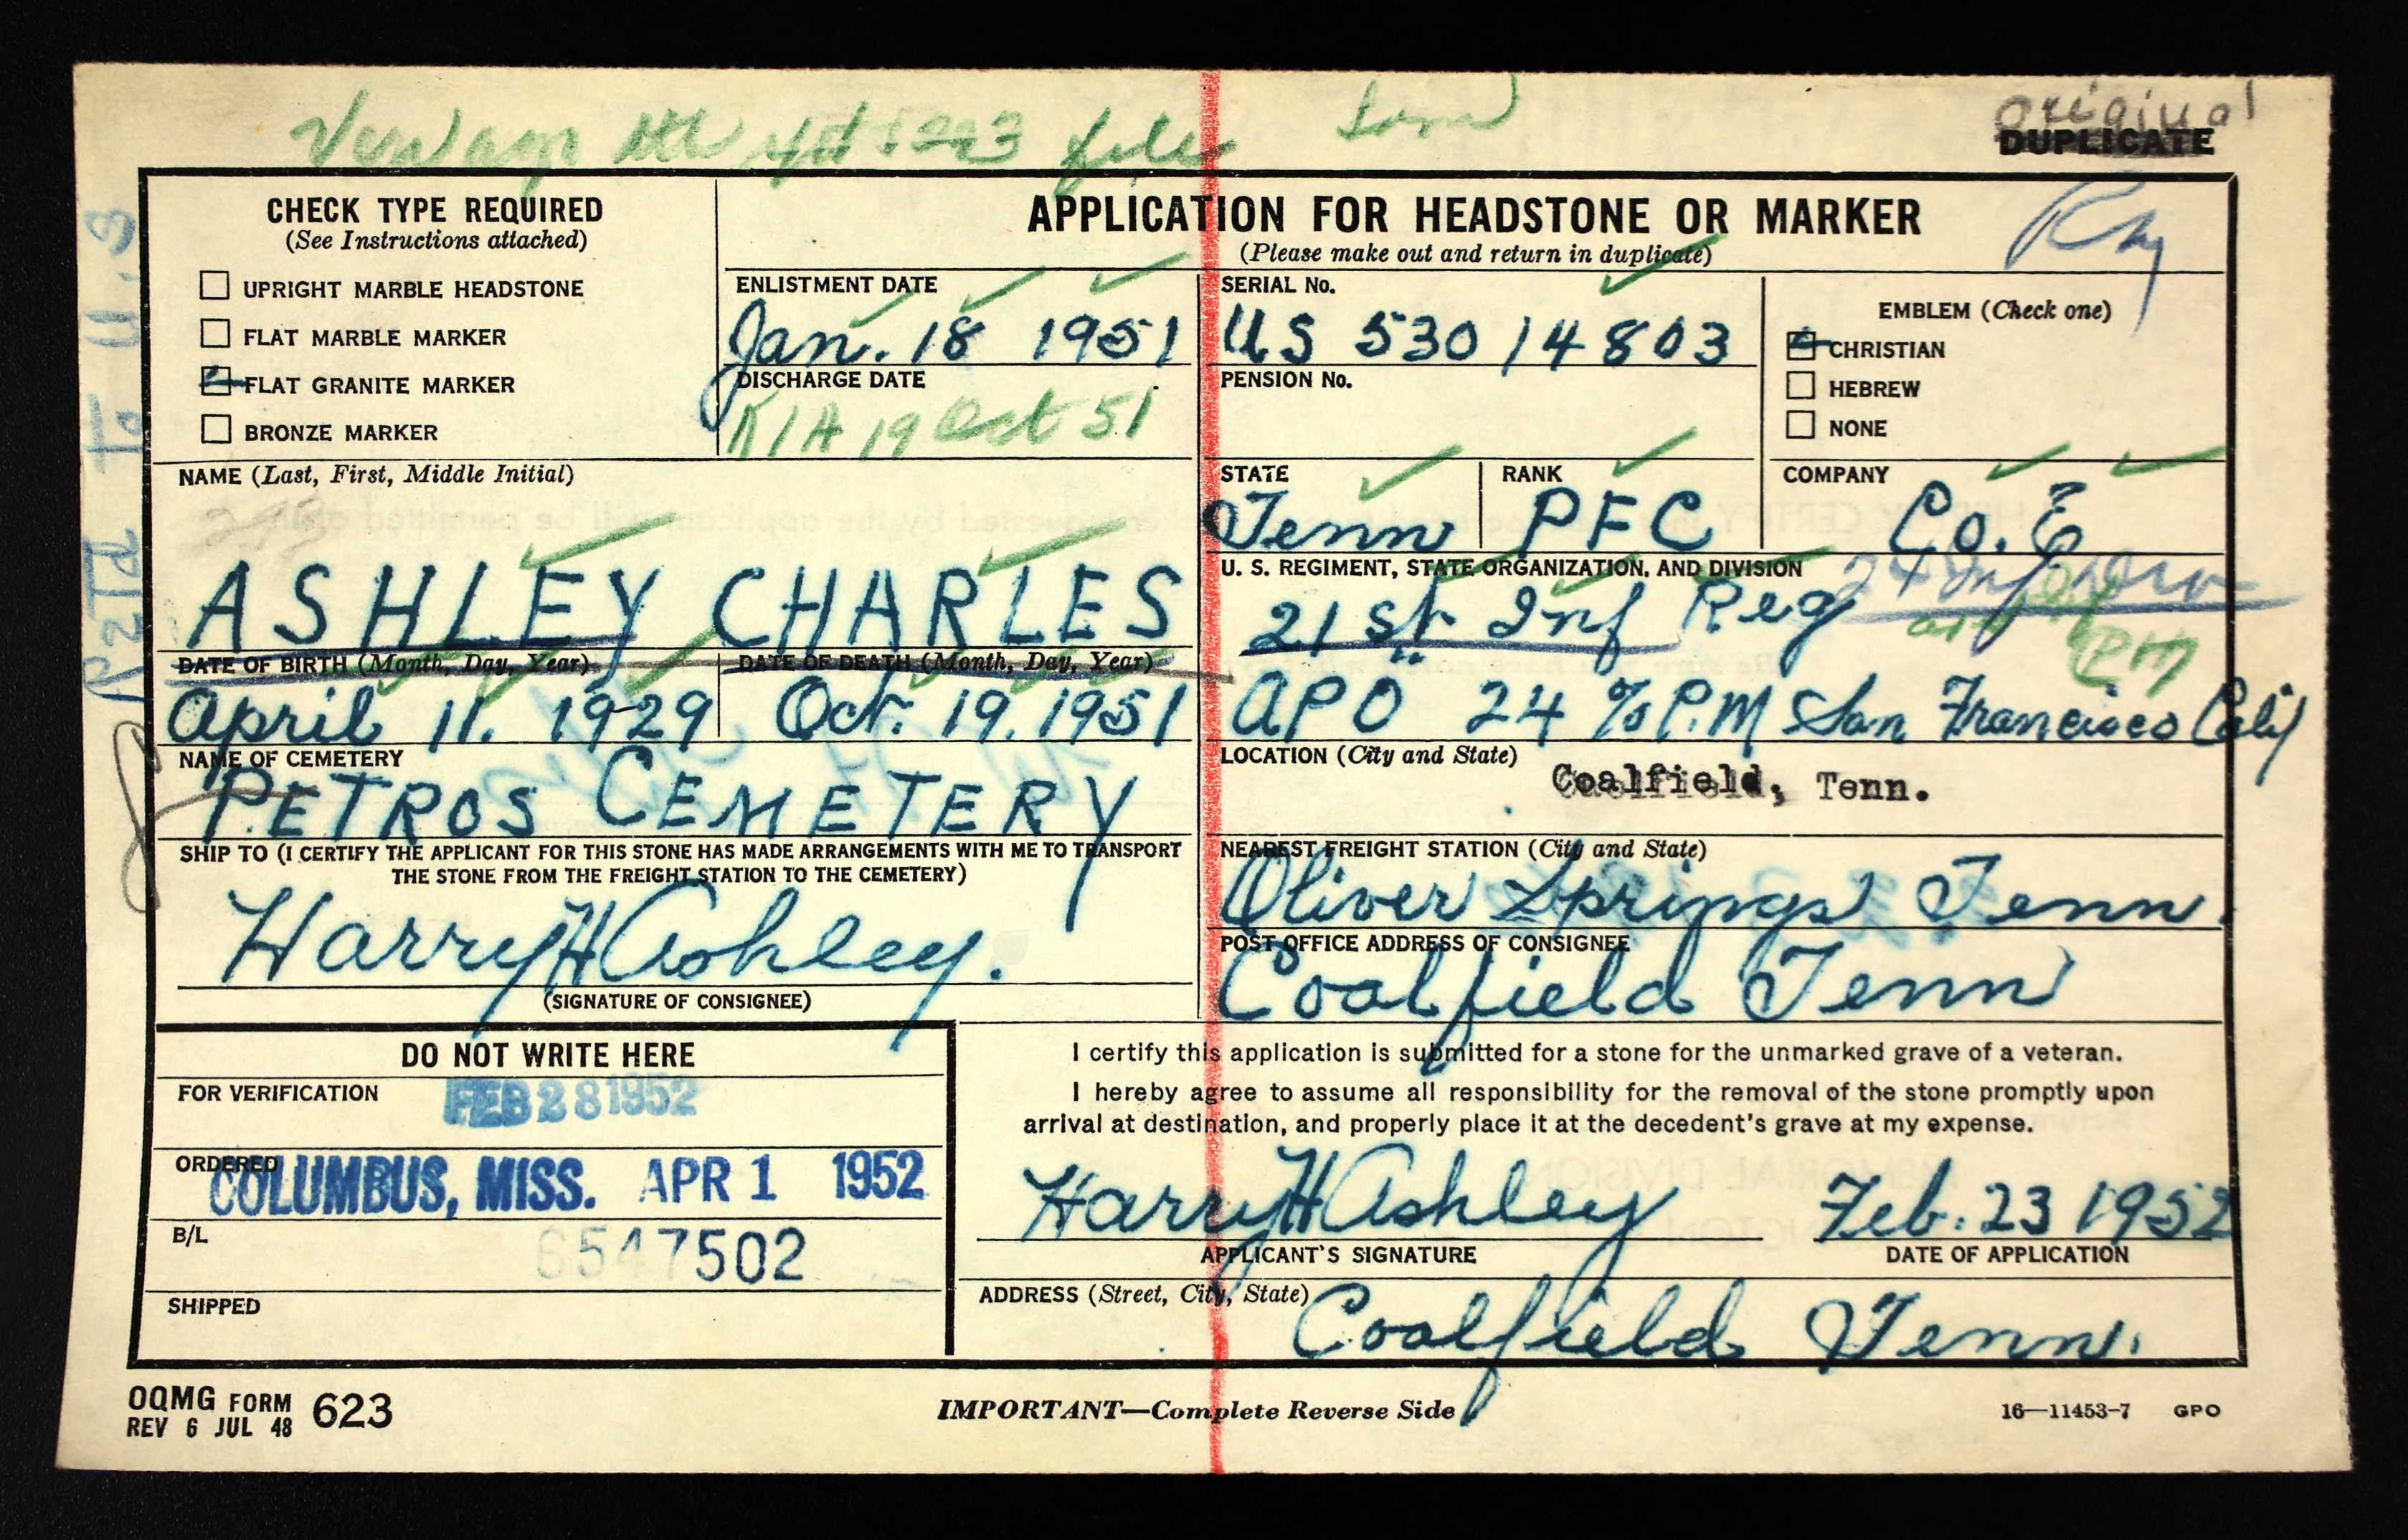 original
DUPLICATE
CHECK TYPE REQUIRED
(See Instructions attached)
UPRIGHT MARBLE HEADSTONE
FLAT MARBLE MARKER
FLAT GRANITE MARKER
BRONZE MARKER
APPLICATION FOR HEADSTONE OR MARKER
(Please make out and return in duplicate)
ENLISTMENT DATE
Jan. 18 1951
DISCHARGE DATE
KIA 19 Oct 51
SERIAL No.
US 530 14803
PENSION No.
EMBLEM (Check one)
CHRISTIAN
HEBREW
NONE
NAME (Last, First, Middle Initial)
ASHLEY CHARLES
STATE
Tenn
RANK
PFC
COMPANY
Co. E
U. S. REGIMENT, STATE ORGANIZATION, AND DIVISION
24 Inf Div
21st Inf Reg
APO 24 % P.M San Francisco Calif
PM
DATE OF BIRTH (Month, Day, Year)
April 11. 1929
DATE OF DEATH (Month, Day, Year)
Oct. 19. 1951
NAME OF CEMETERY
PETROS CEMETERY
LOCATION (City and State)
Coalfield, Tenn.
SHIP TO (I CERTIFY THE APPLICANT FOR THIS STONE HAS MADE ARRANGEMENTS WITH ME TO TRANSPORT
THE STONE FROM THE FREIGHT STATION TO THE CEMETERY)
Harry H Ashley.
(SIGNATURE OF CONSIGNEE)
NEAREST FREIGHT STATION (City and State)
Oliver Springs Tenn.
POST OFFICE ADDRESS OF CONSIGNEE
Coalfield Tenn
DO NOT WRITE HERE
FOR VERIFICATION
FEB 28 1952
ORDERED
COLUMBUS, MISS. APR 1 1952
B/L
6547502
SHIPPED
I certify this application is submitted for a stone for the unmarked grave of a veteran.
I hereby agree to assume all responsibility for the removal of the stone promptly upon
arrival at destination, and properly place it at the decedent's grave at my expense.
Harry H Ashley
APPLICANT'S SIGNATURE
Feb. 23 1952
DATE OF APPLICATION
ADDRESS (Street, City, State)
Coalfield Tenn.
OQMG FORM 623
REV 6 JUL 48
IMPORTANT—Complete Reverse Side
16—11453-7 GPO
R2Td To U.S